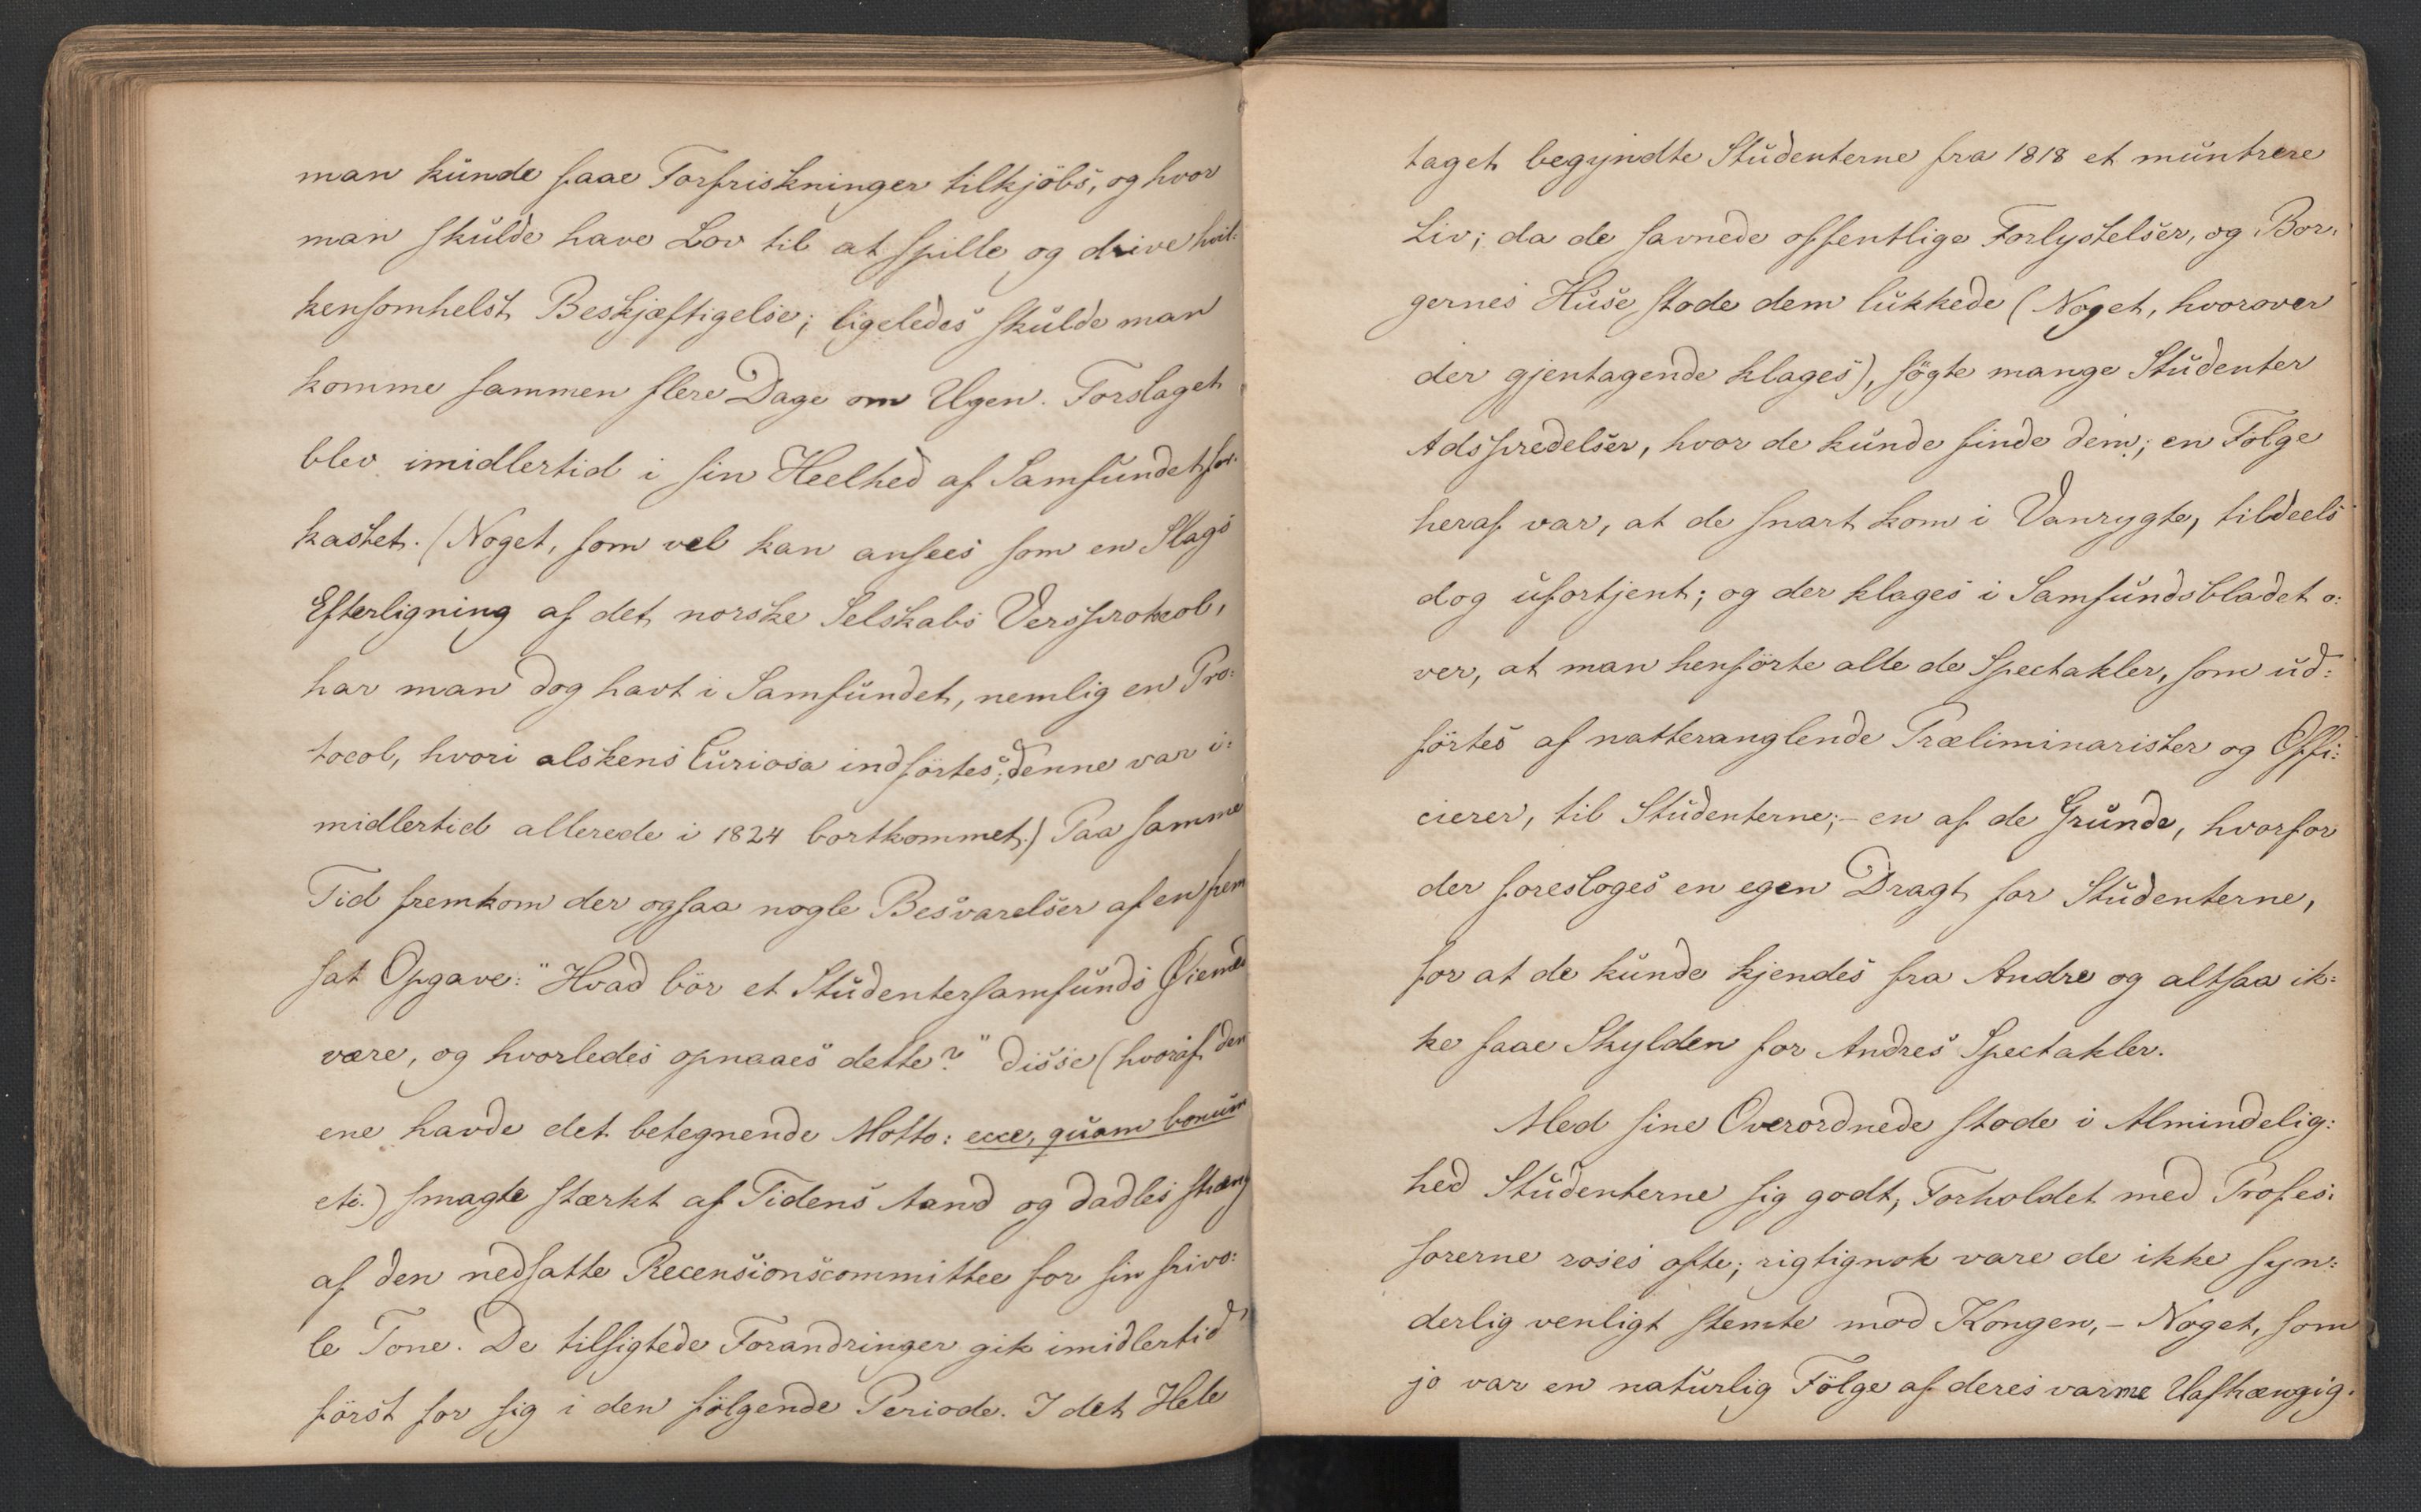 man kunde faae Forfriskninger tilkjöbs, og hvor
man skulde have Lov til at spille og drive hvil:
kensomhelst Beskjæftigelse; ligeledes skulde man
komme sammen flere Dage om Ugen. Forslaget
blev imidlertid i sin Heelhed af Samfundet for:
kastet. (Noget, som vel kan ansees som en Slags
Efterligning af det norske Selskabs Versprotocol,
har man dog havt i Samfundet, nemlig en Pro:
tocol, hvori alskens Curiosa indförtes; denne var i:
midlertid allerede i 1824 bortkommet.) Paa samme
Tid fremkom der ogsaa nogle Besvarelser af en frem
sat Opgave: "Hvad bör et Studentersamfunds Øiemed
være, og hvorledes opnaaes dette?" Disse (hvoraf den
ene havde det betegnende Motto: ecce, quam bonum
etc.) smagte stærkt af Tidens Aand og dadles stræng
af den nedsatte Recensionscommittee for sin frivo:
le Tone. De tilsigtede Forandringer gik imidlertid
först for sig i den fölgende Periode. I det Hele
taget begyndte Studenterne fra 1818 et muntrere
Liv; da de savnede offentlige Forlystelser, og Bor:
gernes Huse stode dem lukkede (Noget, hvorover
der gjentagende klages), sögte mange Studenter
Adspredelser, hvor de kunde finde dem; en Fölge
heraf var, at de snart kom i Vanrygte, tildeels
dog ufortjent; og der klages i Samfundsbladet o:
ver, at man henförte alle de Spectakler, som ud:
förtes af natteranglende Præliminarister og Offi:
cierer, til Studenterne; – en af de Grunde, hvorfor
der foresloges en egen Dragt for Studenterne,
for at de kunde kjendes fra Andre og altsaa ik:
ke faae Skylden for Andres Spectakler.
Med sine Overordnede stode i Almindelig:
hed Studenterne sig godt; Forholdet med Profes:
sorerne roses ofte; rigtignok vare de ikke syn:
derlig venligt stemte mod Kongen, – Noget, som
jo var en naturlig Fölge af deres varme Uafhængig: